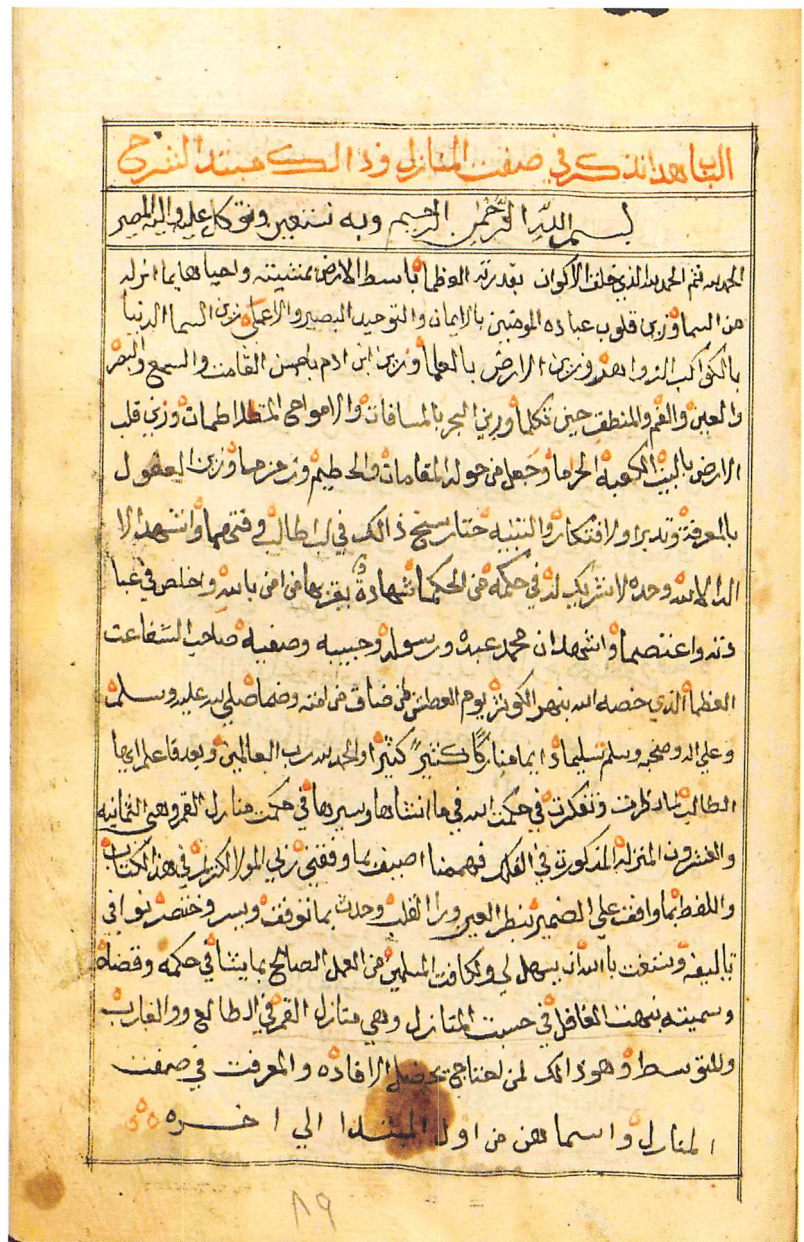 الباب هدا نذكر في صفت المنازل وذالك مبتدا الشرح
بسم الله الرحمن الرحيم وبه نستعين ونتوكل عليه واليه المصير
الحمد لله ثم الحمد لله الذي خلق الاكوان بقدرته العظما باسط الارض بمشيئته واحياها بما انزله
من السما وزين قلوب عباده المومنين بالايمان والتوحيد البصير والاعمى وزين السما الدنيا
بالكواكب الزواهر وزين الارض بالعلما وزين ابن ادم باحسن القامت والسمع والبصر
والعين والفم والمنطق حين تكلما وزين البحر بالمسافات والامواج المتطلاطمات وزين قلب
الارض بالبيت الكعبه الحراما وجعل من حوله المقامات والحطيم وزمزما وزين العقول
بالمعرفة وتدبرا والافتكار والتنبيه حتا رسخ ذالك في لب طالب وفتى فهما واشهد الا
اله الا الله وحده لا شريك له في حكمه من الحكما شهادة يقر بها من امن بالله واخلص في عبا
دته واعتصما واشهد ان محمد عبده ورسوله وحبيبه وصفيه صاحب الشفاعت
العظما الذي خصه الله بنهر الكوثر يوم العطش لمن ضاق من امته وضما صلى الله عليه وسلم
وعلى اله وصحبه وسلم تسليما دايما مباركا كثير كثيرا والحمد لله رب العالمين وبعد فاعلم ايها
الطالب لما نظرت وتفكرت في حكمت الله في ما انشاها وسيرها في حكمت منازل القمر وهي الثمانيه
والعشرون المنزله المذكورة في الفلك فهممنا اصيف بما وفقني ربي المولا الكريم في هذا الكتاب
واللفظ بما وافت على الضمير بنظر العير ورا القلب وحدث بما توقفت ويسر وختصر بوافي
تاليفه وستغت باالله ان يسهل لي ولكافت المسلمين من العمل الصالح بما يشا في حكمه وقضاه
وسميته بنبهت الغافل في حسبت المنازل وهي منازل القمر في الطالع ووالغارب
وللتوسط وهو ذالك لمن احتاج تحصل الافاده والمعرفت في صفت
المنازل واسماهن من اول المبتدا الي اخره
٨٩